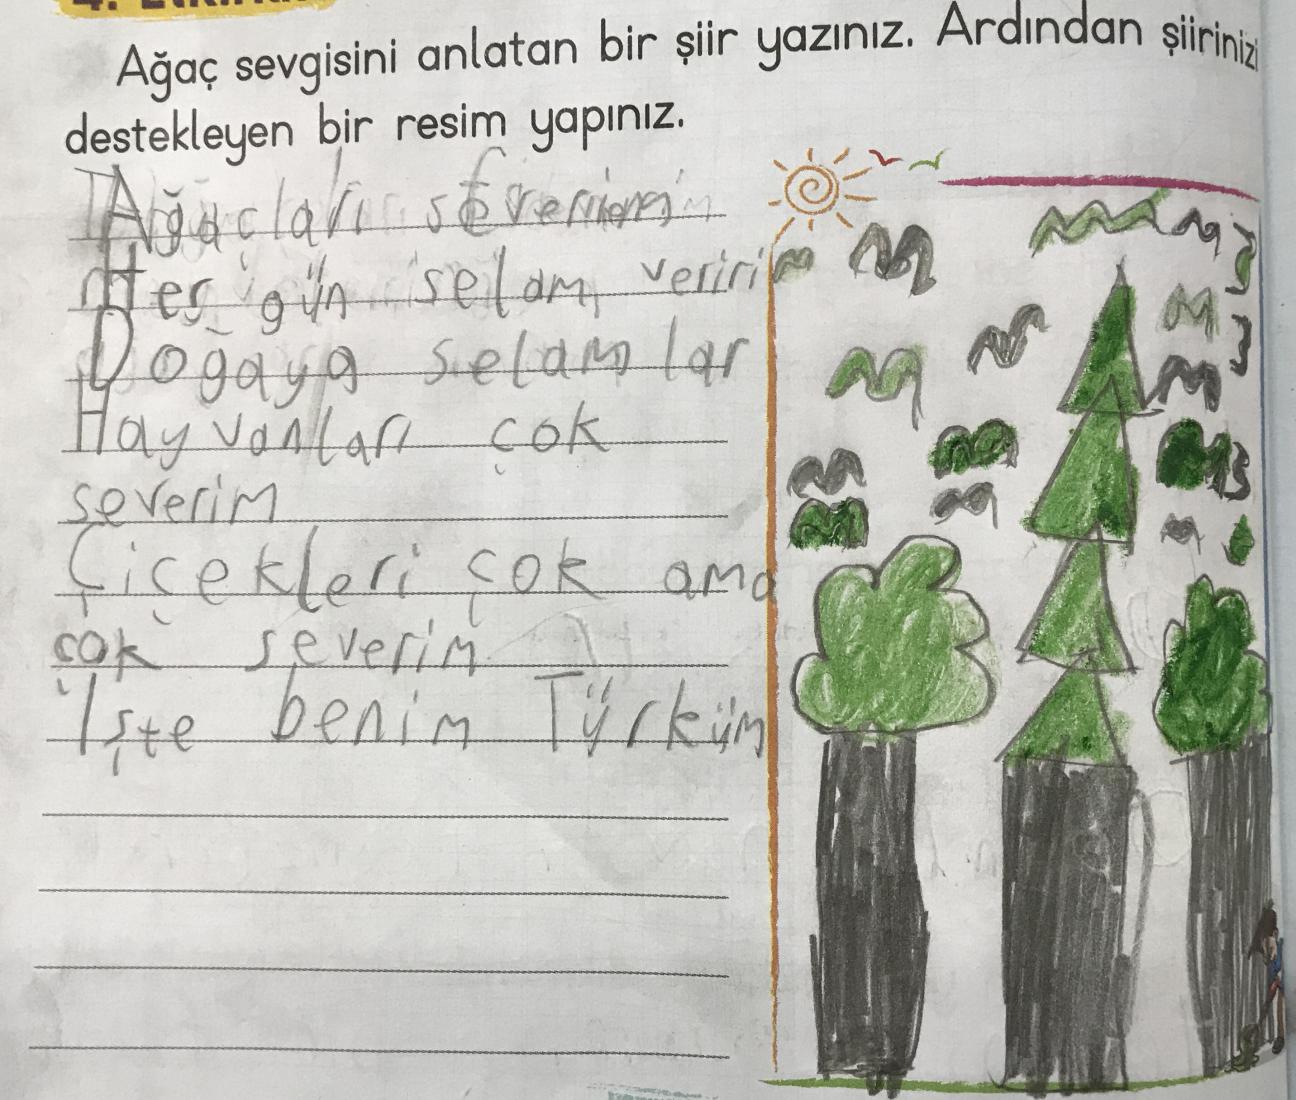 Ağaç sevgisini anlatan bir şiir yazınız. Ardından şiirinizi
destekleyen bir resim yapınız.
Ağaçları severim
Her gün selam veririm
Doğaya selamlar
Hayvanları çok
severim
Çiçekleri çok ama
çok severim
İşte benim Türküm